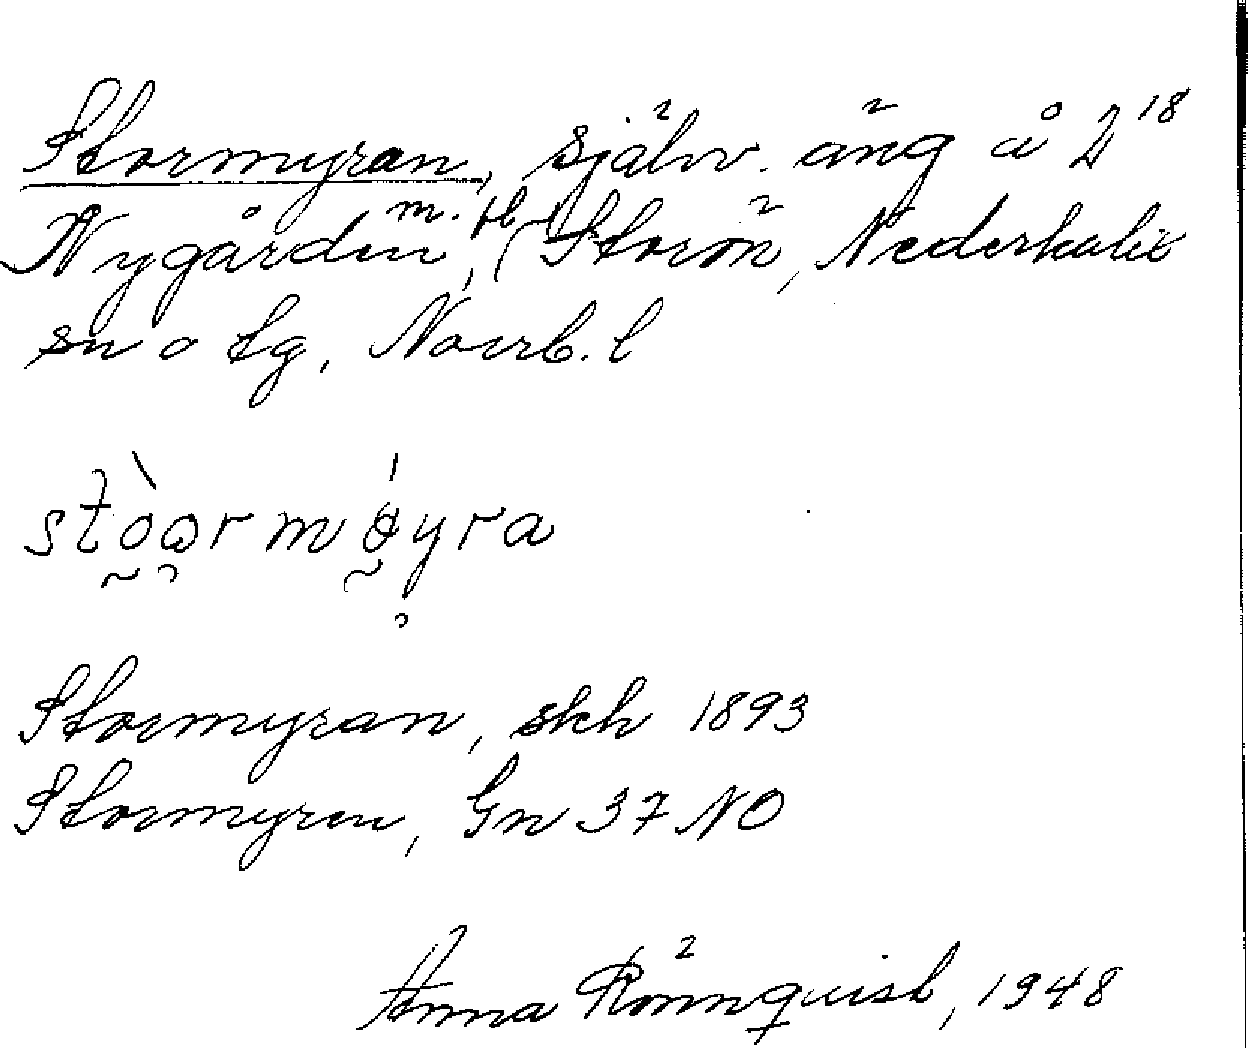 Stormyran, självv. äng å 2¹⁸
Nygården, m. fl. (Storön, Nederkalix
sn o tg, Norrb. l
Stormyran, skh 1893
Stormyren, Gn 37 NO
Anna Rönnquist, 1948